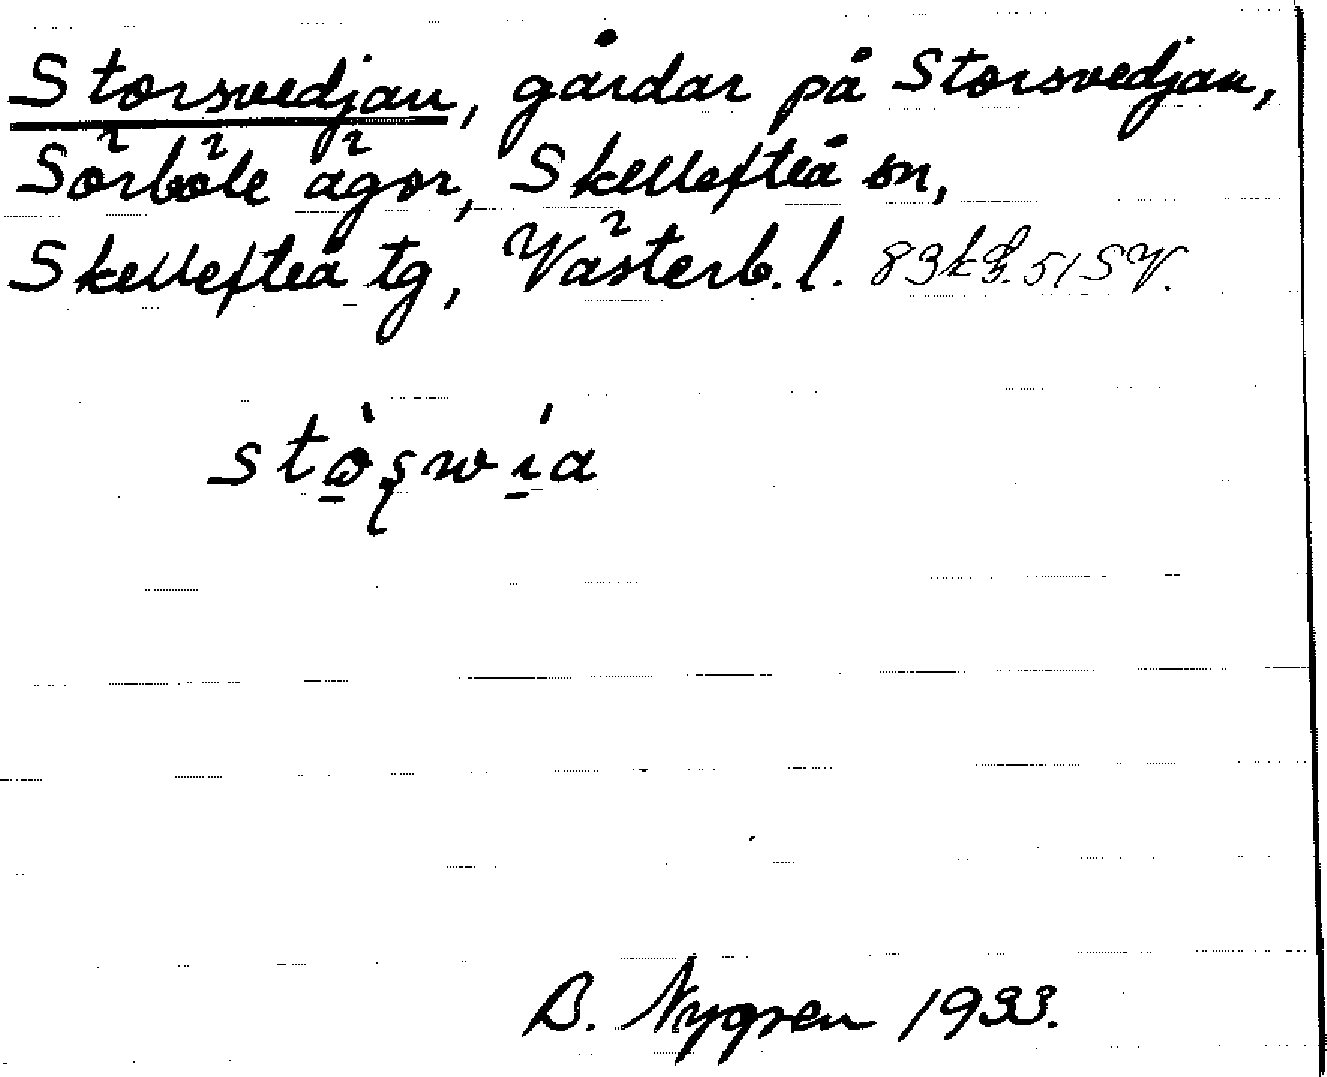 Storsvedjan, gårdar på Storsvedjan,
Sörböle ägor, Skellefteå sn,
Skellefteå tg, Västerb. l. 83 51 SV.
B. Nygren 1933.